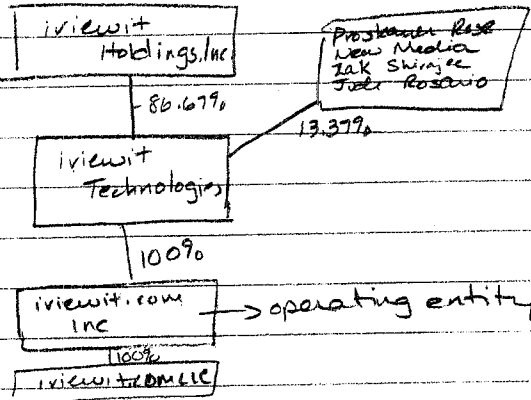 iviewit
Holdings, Inc
Proskauer Rose
New Media
Zak Shirajee
Jude Rosario
86.67%
13.37%
iviewit
Technologies
100%
iviewit.com
Inc
operating entity
100%
iviewit.com LLC